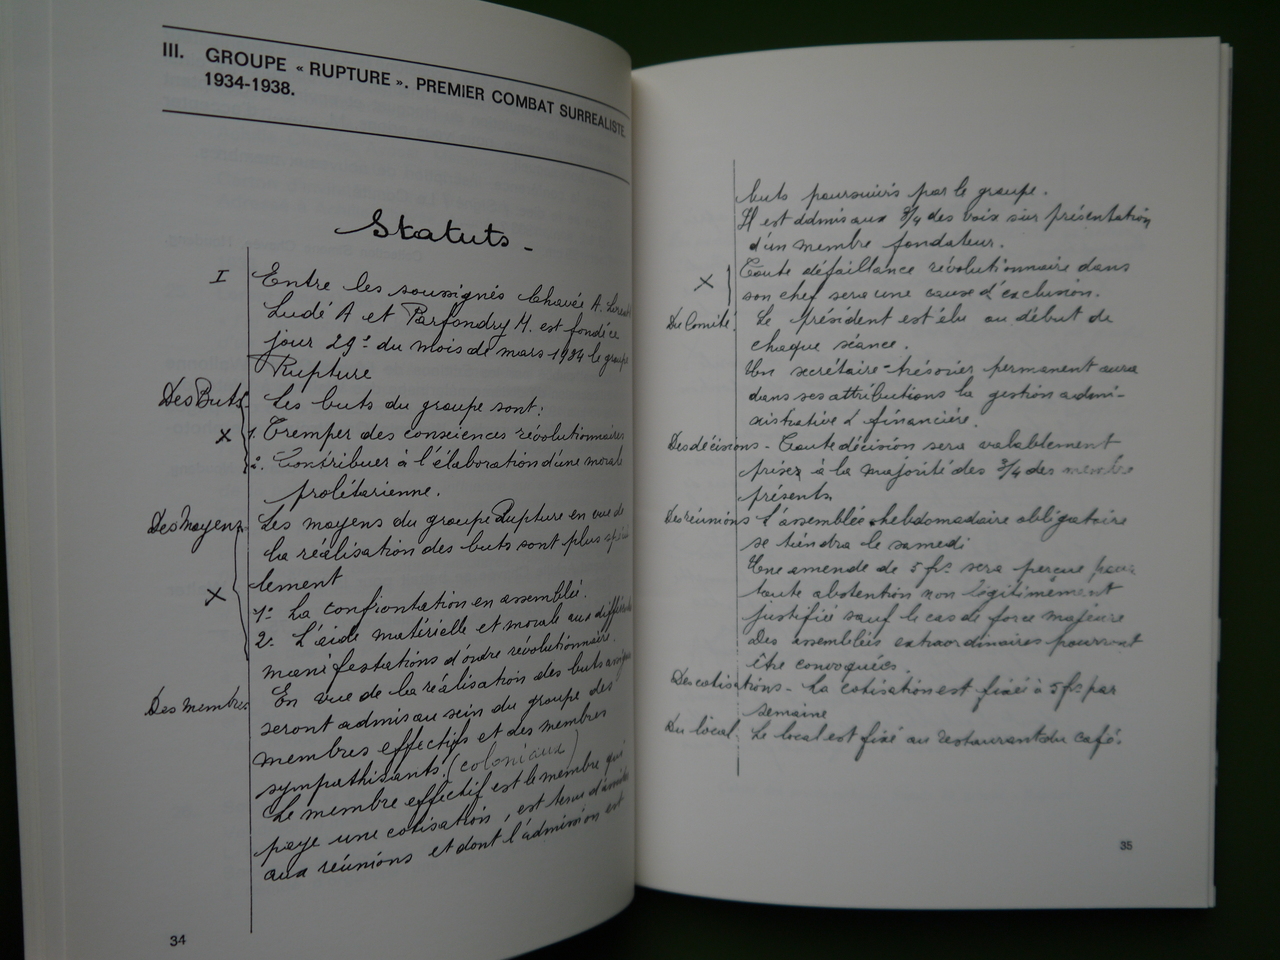 III. GROUPE « RUPTURE ». PREMIER COMBAT SURREALISTE.
1934-1938.
Statuts -
I Entre les soussignés Chavée A. Lorent
Ludé A et Parfondry H. est fondé ce
jour 29e du mois de mars 1934 le groupe
Rupture
Des Buts - Les buts du groupe sont:
X 1. Tremper des consciences révolutionnaires
2. Contribuer à l'élaboration d'une morale
prolétarienne.
Des Moyens Les moyens du groupe Rupture en vue de
la réalisation des buts sont plus spécia
lement
X 1º La confrontation en assemblée.
2º L'aide matérielle et morale aux différentes
manifestations d'ordre révolutionnaire.
Des membres En vue de la réalisation des buts
seront admis au sein du groupe des
membres effectifs et des membres
sympathisants. (coloniaux)
Le membre effectif est le membre qui
paye une cotisation, est tenu d'assister
aux réunions et dont l'admission est
34
buts poursuivis par le groupe.
Il est admis aux 3/4 des voix sur présentation
d'un membre fondateur.
X Toute défaillance révolutionnaire dans
son chef sera une cause d'exclusion.
Du Comité. Le président est élu au début de
chaque séance.
Un secrétaire-trésorier permanent aura
dans ses attributions la gestion admi-
nistrative & financière.
Des décisions - Toute décision sera valablement
prise à la majorité des 3/4 des membre
présents
Des réunions L'assemblée hebdomadaire obligatoire
se tiendra le samedi
Une amende de 5 frs sera perçue pour
toute abstention non légitimement
justifiée sauf le cas de force majeure
Des assemblées extraordinaires pourront
être convoquées.
Des cotisations - La cotisation est fixée à 5 frs par
semaine
Du local. Le local est fixé au restaurant du café.
35